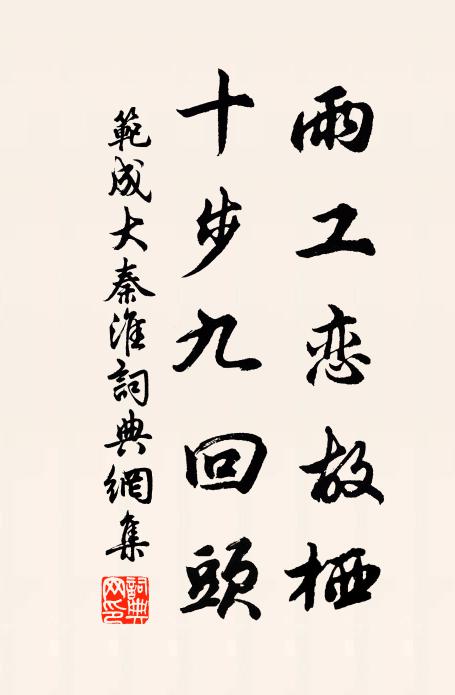 雨工恋故栖
十步九回頭
範成大秦淮詞典網集
詞典網印